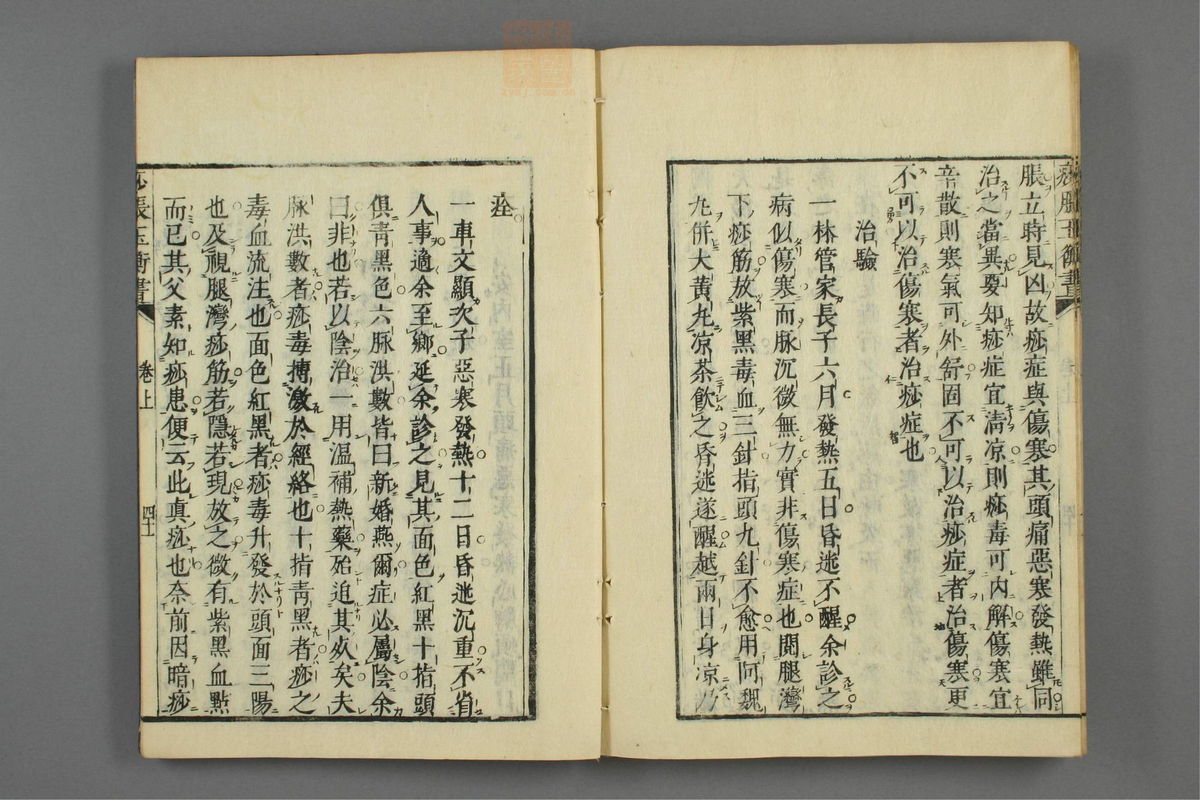 痧脹玉衡書
脹立時見凶故痧症與傷寒其頭痛惡寒發熱雖同
治之當異要知痧症宜清凉則痧毒可内解傷寒宜
辛散則寒氣可外舒固不可以治痧症者治傷寒更
不可以治傷寒者治痧症也
治驗
一林管家長子六月發熱五日昏迷不醒余診之
病似傷寒而脉沉微無力實非傷寒症也閱腿灣
下痧筋放紫黑毒血三針指頭九針不愈用阿魏
九併大黄丸凉茶飲之昏迷遂醒越兩日身凉乃
痊
一車文顯次子惡寒發熱十二日昏迷沉重不省
人事適余至鄉延余診之見其面色紅黑十指頭
俱青黑色六脉洪數皆曰新婚燕爾症必屬陰余
曰非也若以陰治一用温補熱藥殆追其疚矣夫
脉洪數者痧毒搏激於經絡也十指青黑者痧之
毒血流注也面色紅黑者痧毒升發於頭面三陽
也及視腿灣痧筋若隱若現放之微有紫黑血點
而已其父素知痧患便云此真痧也奈前因暗痧
痧脹玉衡書 卷上 四十